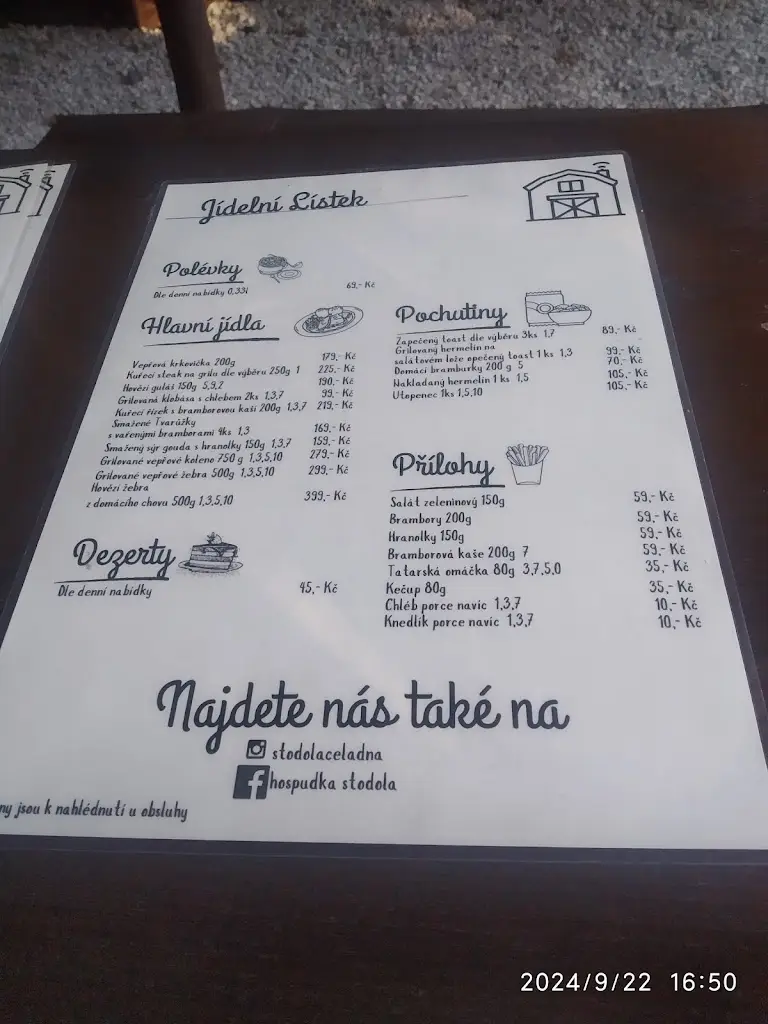 Jídelní Lístek
Polévky
Dle denní nabídky 0,33l 69,- Kč
Hlavní jídla
Vepřová krkovička 200g 179,- Kč
Kuřecí steak na grilu dle výběru 250g 1 225,- Kč
Hovězí guláš 150g 5,9,2 190,- Kč
Grilovaná klobása s chlebem 2ks 1,3,7 99,- Kč
Kuřecí řízek s bramborovou kaší 200g 1,3,7 219,- Kč
Smažené Tvarůžky
s vařenými bramborami 4ks 1,3 169,- Kč
Smažený sýr gouda s hranolky 150g 1,3,7 159,- Kč
Grilované vepřové koleno 750 g 1,3,5,10 279,- Kč
Grilované vepřové žebra 500g 1,3,5,10 299,- Kč
Hovězí žebra
z domácího chovu 500g 1,3,5,10 399,- Kč
Dezerty
Dle denní nabídky 45,- Kč
Pochutiny
Zapečený toast dle výběru 3ks 1,7 89,- Kč
Grilovaný hermelín na
salátovém lože opečený toast 1 ks 1,3 99,- Kč
Domácí bramburky 200 g 5 70,- Kč
Nakládaný hermelín 1 ks 1,5 105,- Kč
Utopenec 1ks 1,5,10 105,- Kč
Přílohy
Salát zeleninový 150g 59,- Kč
Brambory 200g 59,- Kč
Hranolky 150g 59,- Kč
Bramborová kaše 200g 7 59,- Kč
Tatarská omáčka 80g 3,7,5,0 35,- Kč
Kečup 80g 35,- Kč
Chléb porce navíc 1,3,7 10,- Kč
Knedlík porce navíc 1,3,7 10,- Kč
Najdete nás také na
stodolaceladna
f hospudka stodola
ny jsou k nahlédnutí u obsluhy
2024/9/22 16:50